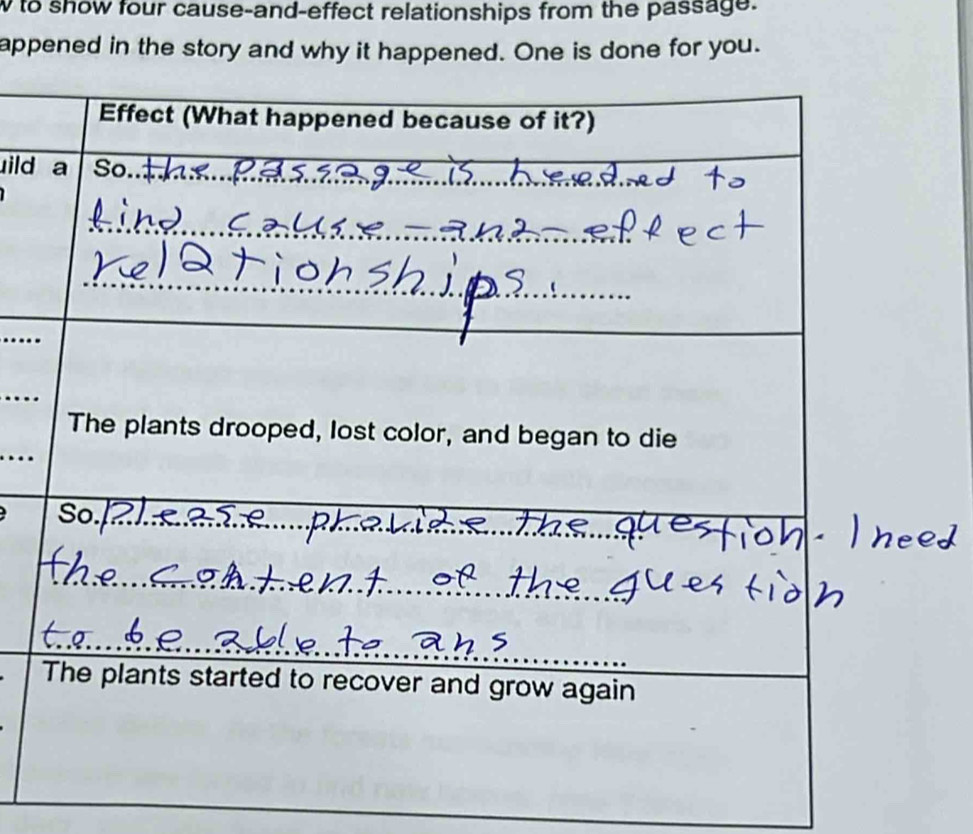 w to show four cause-and-effect relationships from the passage.
appened in the story and why it happened. One is done for you.
Effect (What happened because of it?)
uild a
So...the passage is needed to
find cause-and-effect
relationships.
The plants drooped, lost color, and began to die
So.please provide the question. I need
the content of the question
to be able to ans
The plants started to recover and grow again